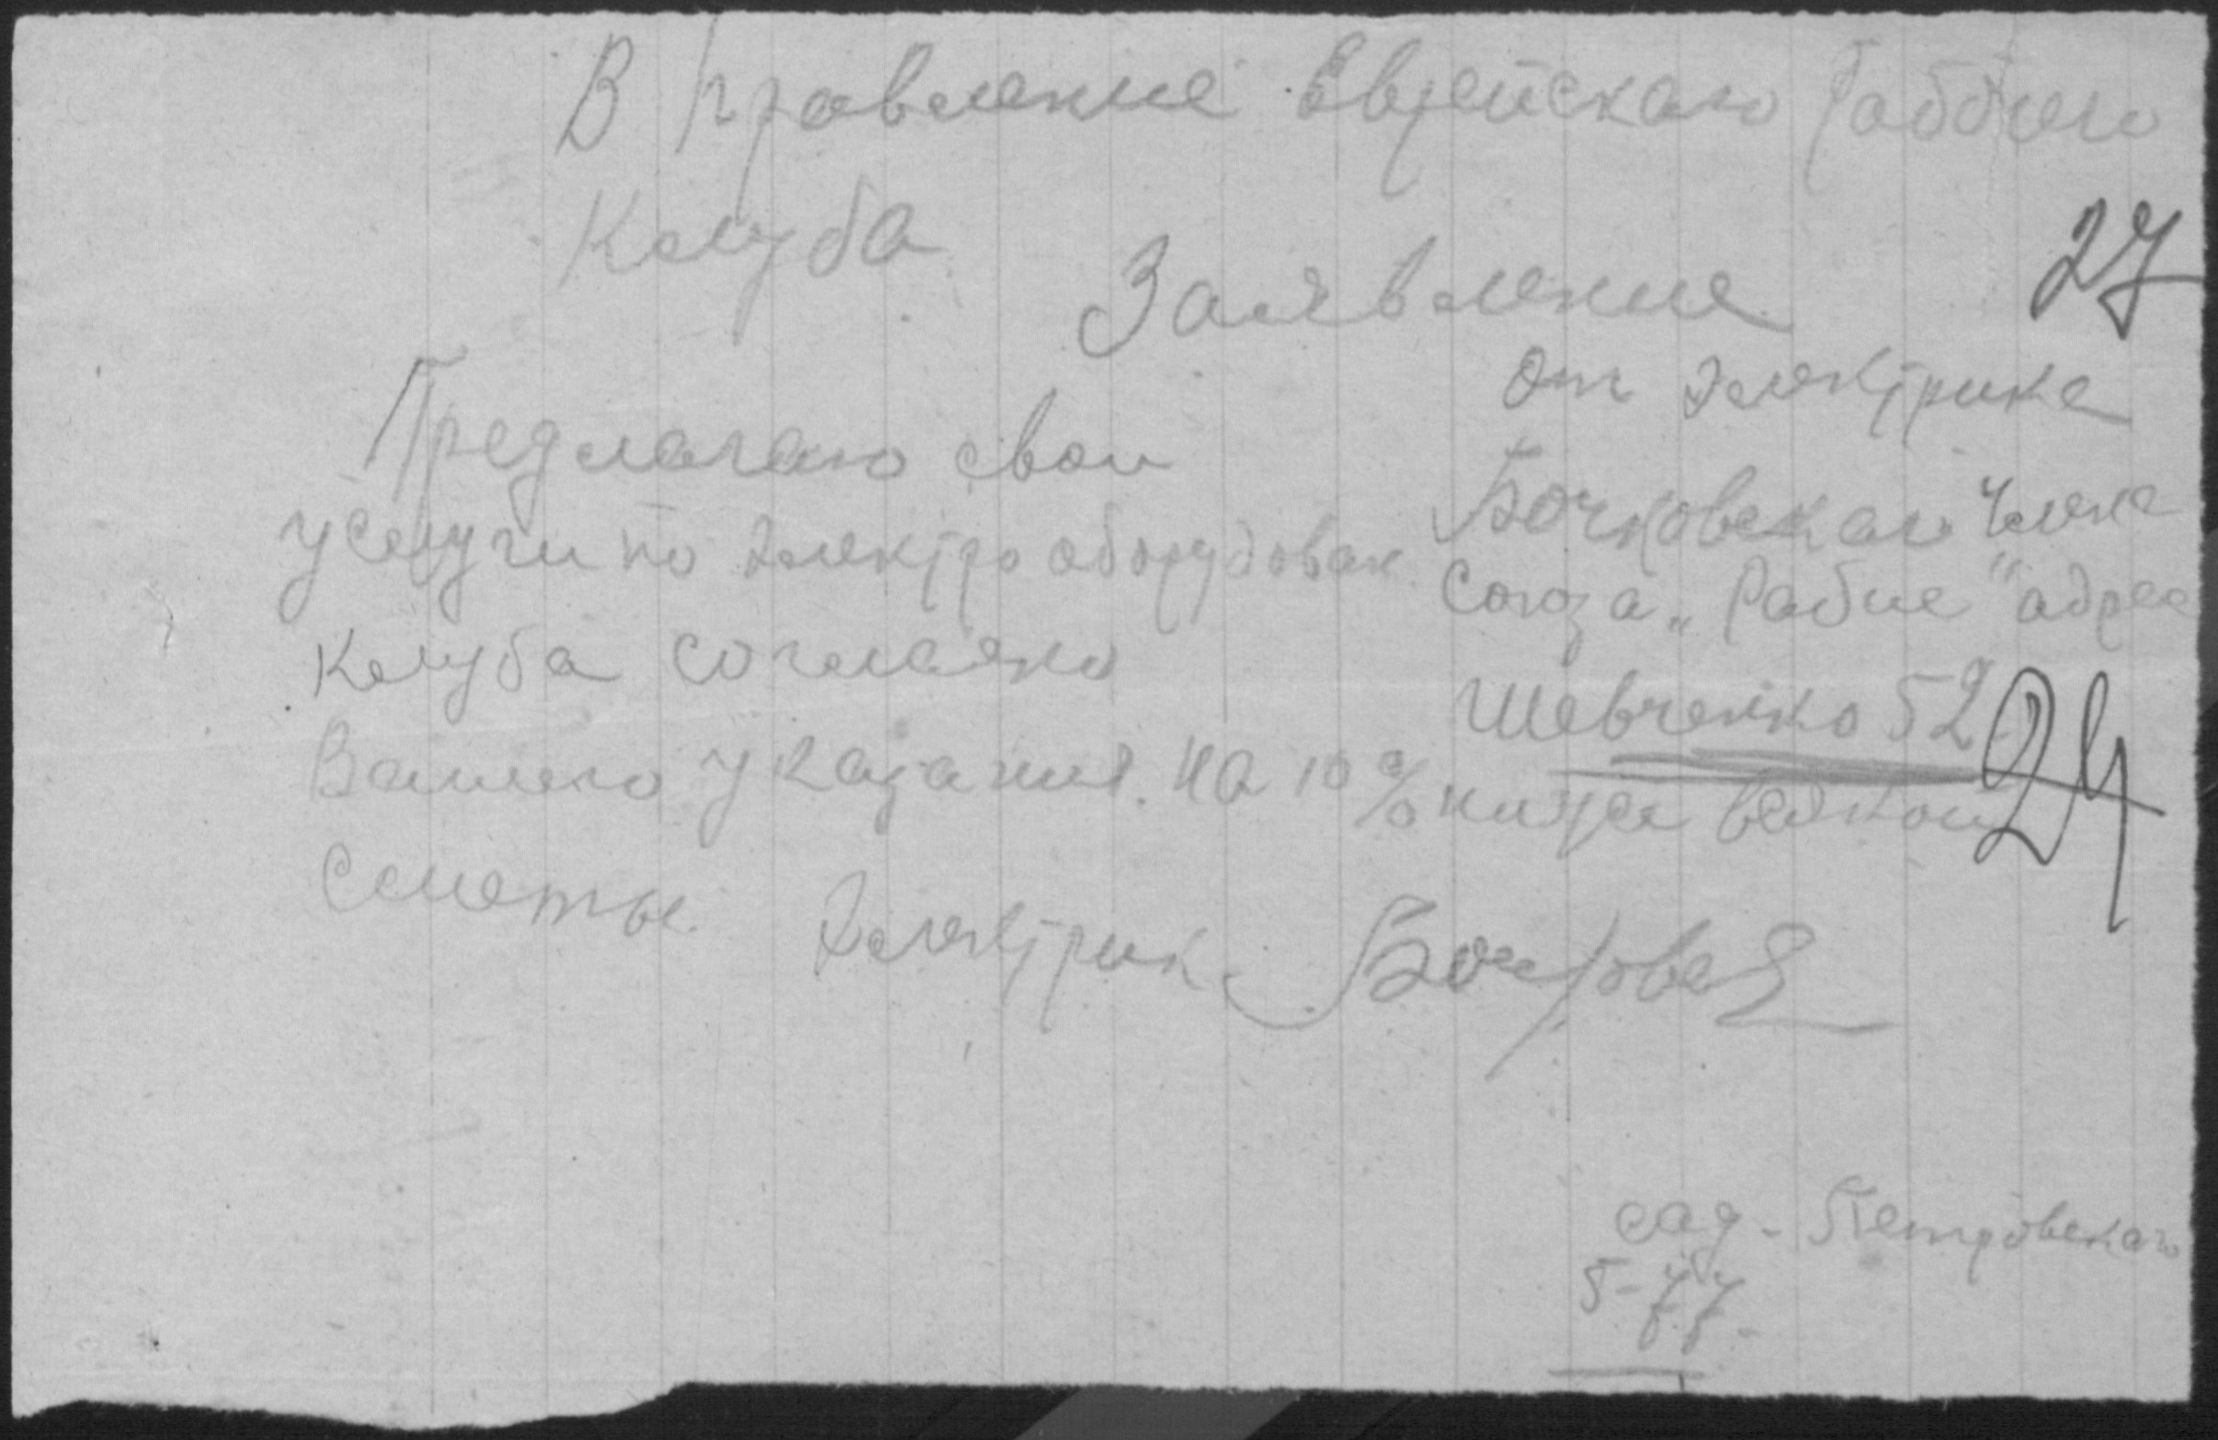 В правление Еврейскаго Рабочего
Клуба
27
Заявление
от электрика
Бочковскаго члена
Союза „Рабис" адрес
Шевченко 52
24
Предлагаю свои
услуги по электро оборудован.
Клуба согласно
Вашего указания. на 10% ниже всякой
Сметы.
Электрик
сад - Петровскаго
5-77-